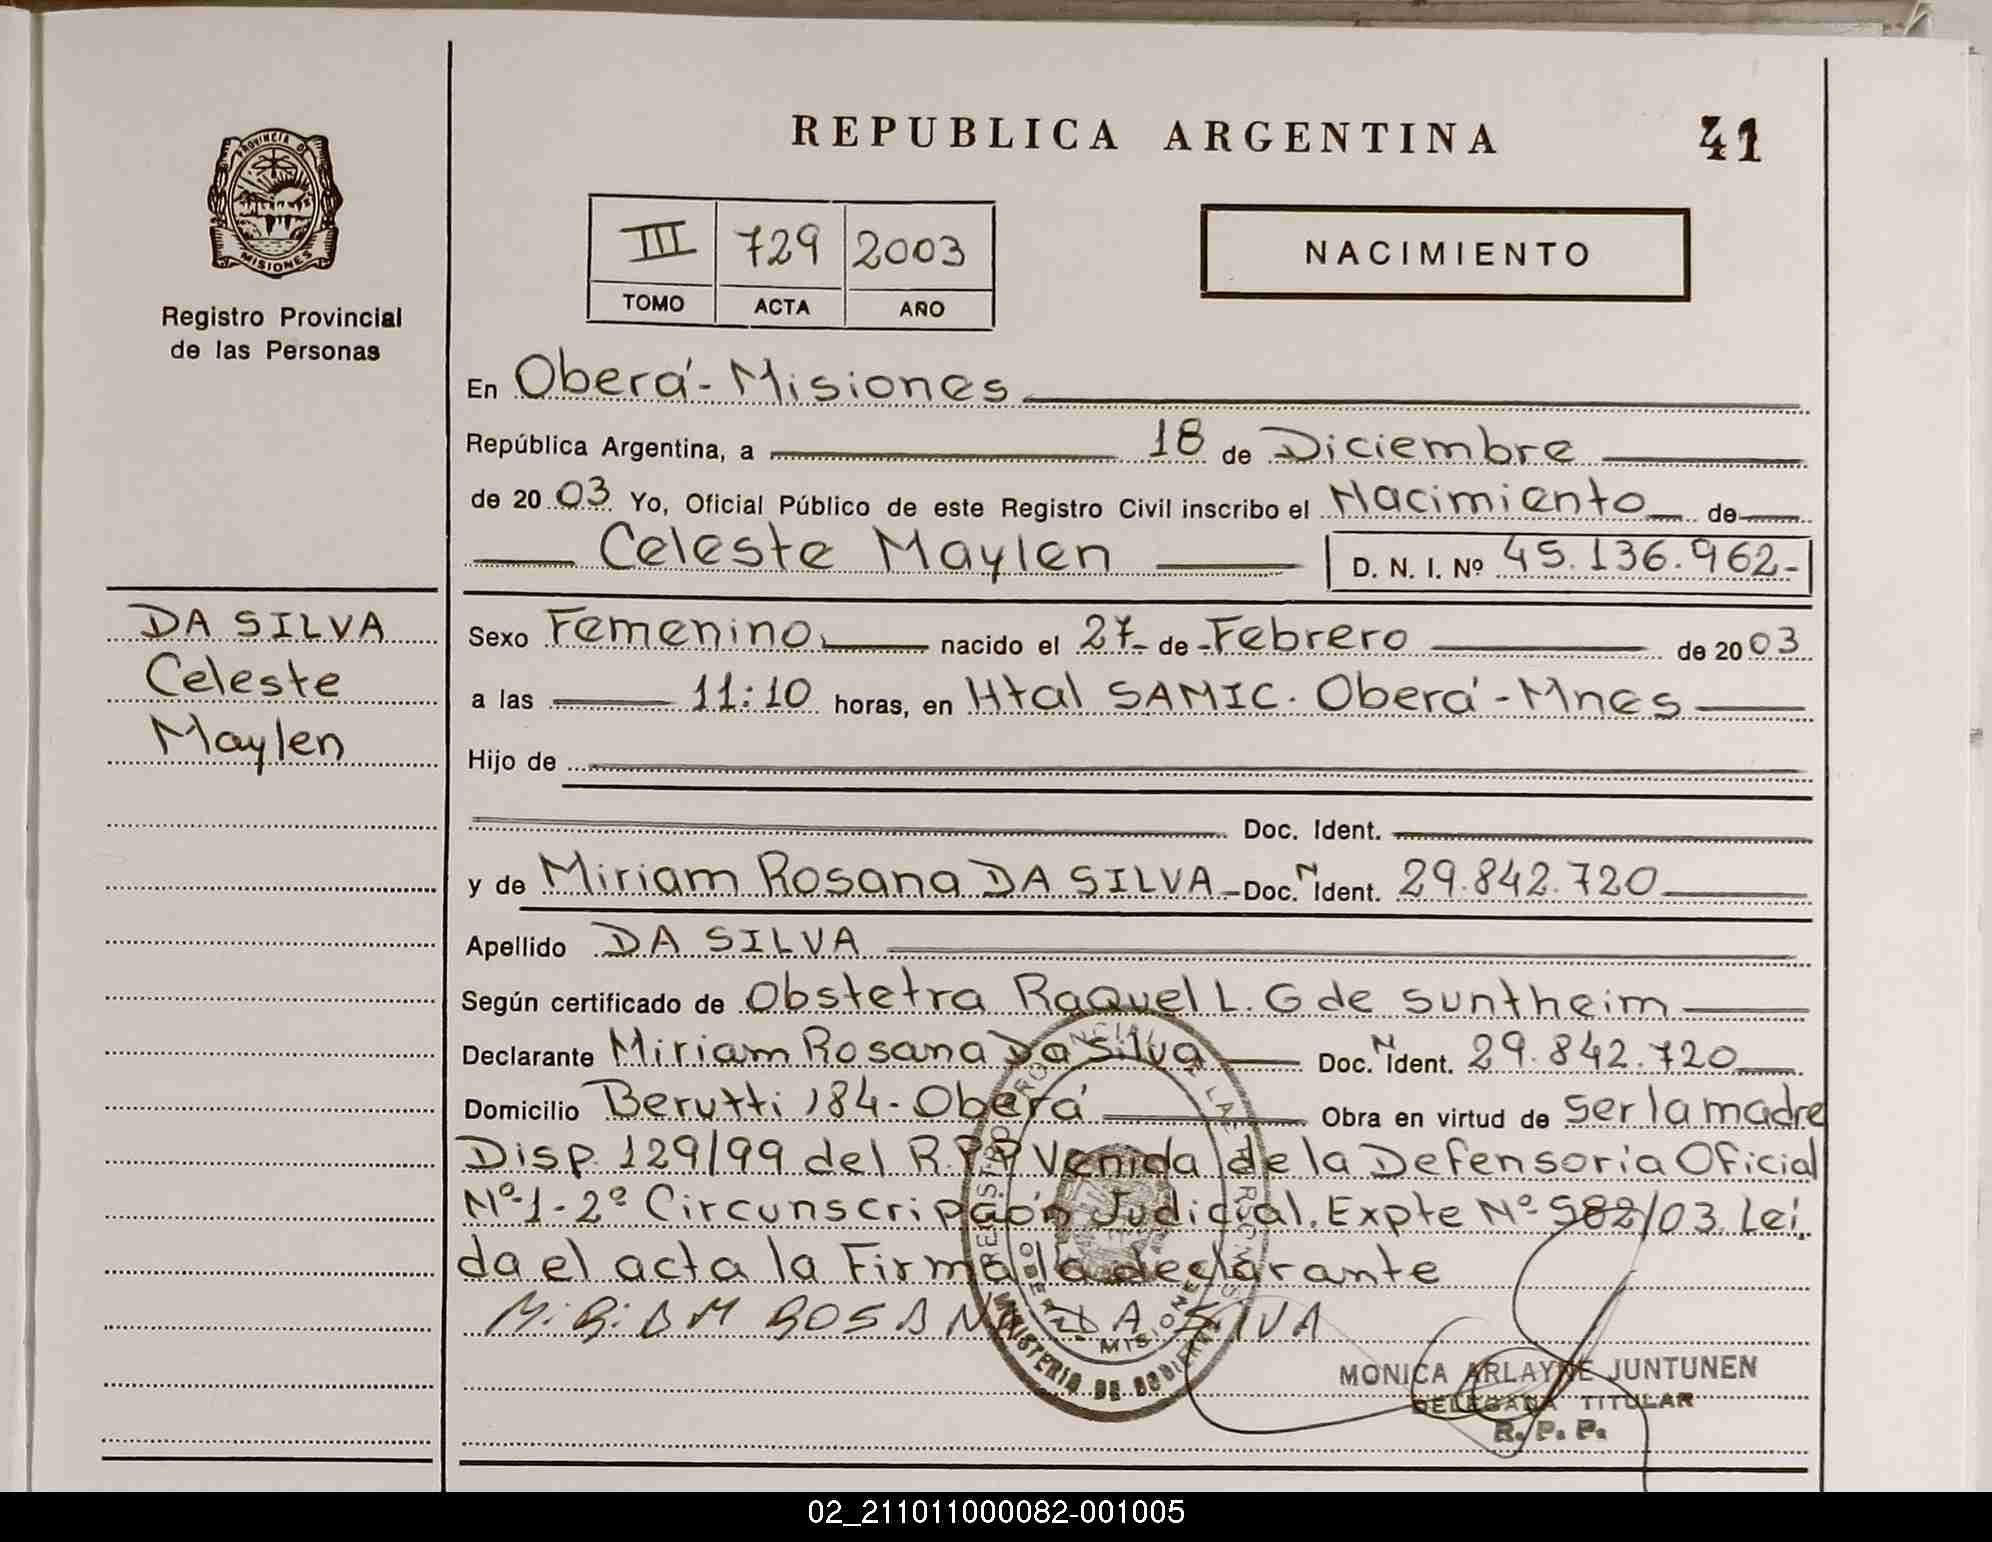 REPUBLICA ARGENTINA
41
PROVINCIA D
MISIONES
Registro Provincial
de las Personas
III 729 2003
TOMO ACTA AÑO
NACIMIENTO
En Oberá - Misiones
República Argentina, a 18 de Diciembre
de 20 03 Yo, Oficial Público de este Registro Civil inscribo el Nacimiento de
Celeste Maylen D. N. I. Nº 45.136.962-
DA SILVA
Celeste
Maylen
Sexo Femenino nacido el 27 de Febrero de 20 03
a las 11:10 horas, en Htal SAMIC. Oberá - Mnes
Hijo de
Doc. Ident.
y de Miriam Rosana DA SILVA - Doc. N Ident. 29.842.720
Apellido DA SILVA
Según certificado de Obstetra Raquel L. G de Suntheim
Declarante Miriam Rosana Da Silva Doc. N Ident. 29.842.720
Domicilio Berutti 184 - Oberá Obra en virtud de ser la madre
Disp. 129/99 del R.P.P Venida de la Defensoría Oficial
Nº 1 - 2º Circunscripción Judicial. Expte Nº 582/03. Leí
da el acta la Firma: la declarante
MiRiAM ROSANA DA SIVA
MINISTERIO DE GOBIERNO
MISIONES
MONICA ARLAYNE JUNTUNEN
DELEGADA TITULAR
R. P. P.
02_211011000082-001005